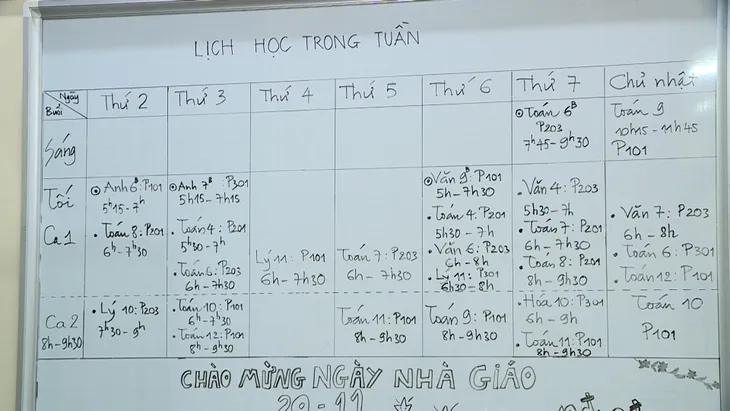 LỊCH HỌC TRONG TUẦN
Ngày
Buổi
Thứ 2
Thứ 3
Thứ 4
Thứ 5
Thứ 6
Thứ 7
Chủ nhật
Sáng
⊙ Toán 6B
P203
7h45 - 9h30
Toán 9
10h15 - 11h45
P101
Tối
Ca 1
⊙ Anh 6B: P101
5h15 - 7h
• Toán 8: P201
6h - 7h30
⊙ Anh 7B: P301
5h15 - 7h15
• Toán 4: P201
5h30 - 7h
• Toán 6: P203
6h - 7h30
Lý 11: P101
6h - 7h30
Toán 7: P203
6h - 7h30
⊙ Văn 9B: P101
5h - 7h30
• Toán 4: P201
5h30 - 7h
• Văn 6: P203
6h - 8h
• Lý 11: P301
6h30 - 8h
• Văn 4: P203
5h30 - 7h
• Toán 7: P201
6h - 7h30
• Toán 8: P203
8h - 9h30
• Văn 7: P203
6h - 8h
• Toán 6: P301
• Toán 12: P101
Ca 2
8h - 9h30
• Lý 10: P203
7h30 - 9h
• Toán 10: P101
6h - 7h30
• Toán 12: P101
8h - 9h30
Toán 11: P101
8h - 9h30
Toán 9: P101
8h - 9h30
• Hóa 10: P301
6h - 9h
• Toán 11: P101
8h - 9h30
Toán 10
P101
CHÀO MỪNG NGÀY NHÀ GIÁO
20 - 11